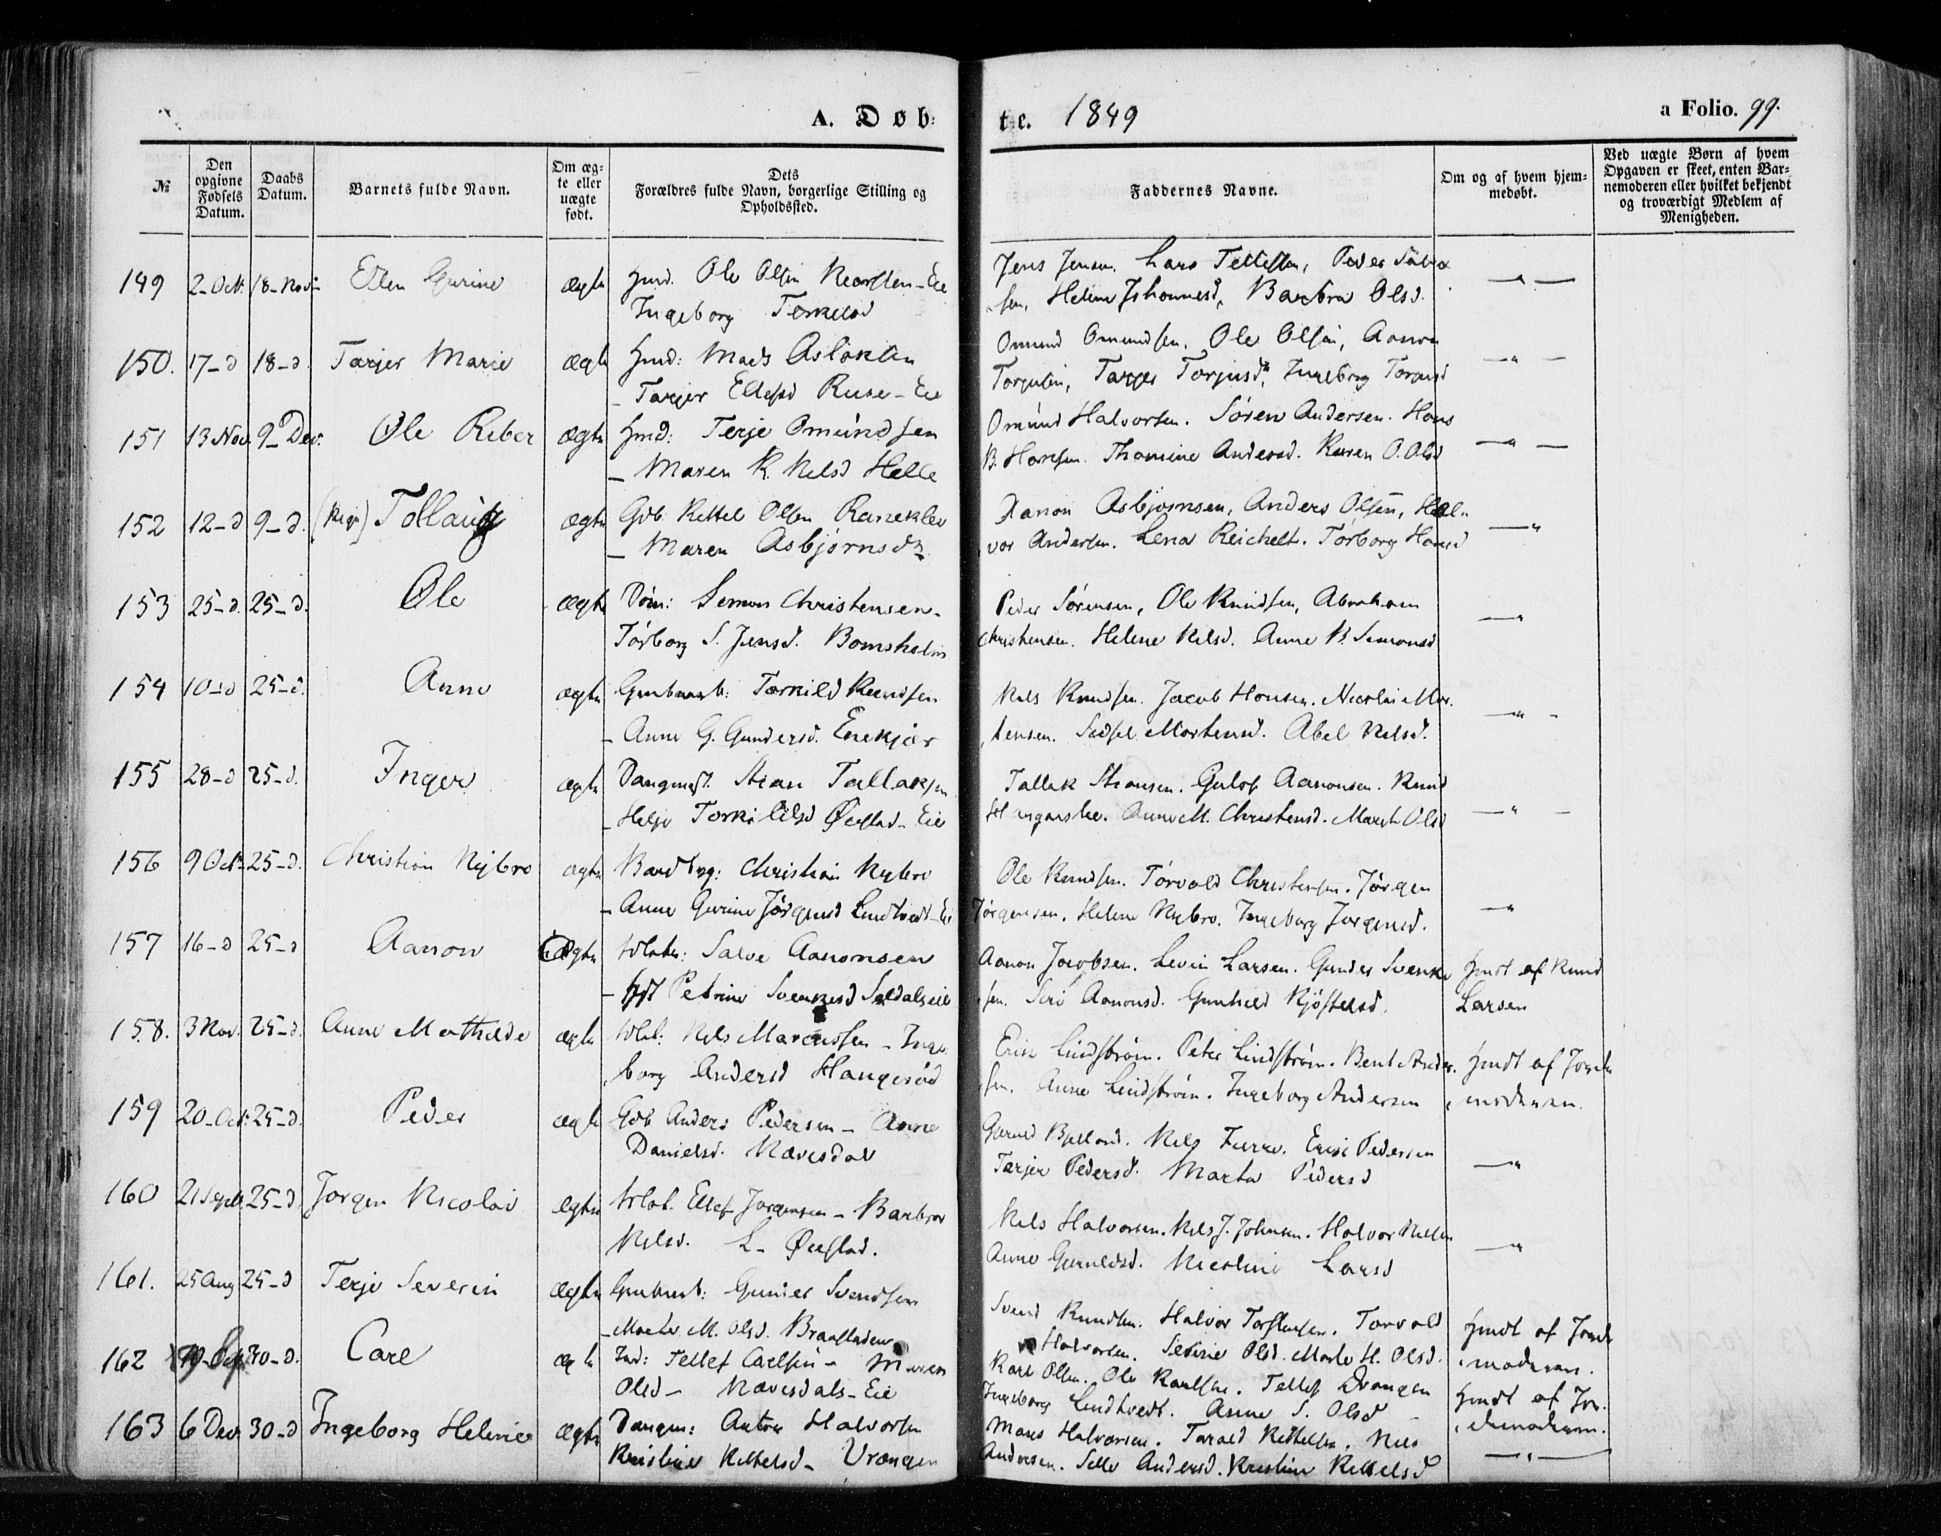 A. Døb-
te. 1849
a Folio. 99.
№
Den opgivne Fødsels Datum.
Daabs Datum.
Barnets fulde Navn.
Om ægte eller uægte født.
Dets Forældres fulde Navn, borgerlige Stilling og Opholdssted.
Faddernes Navne.
Om og af hvem hjemmedøbt.
Ved uægte Børn af hvem Opgaven er skeet, enten Barnemoderen eller hvilket bekjendt og troværdigt Medlem af Menigheden.
149 2_Oct 18_Nov Ellen Gurine ægte Hmd. Ole Olsen
Ingeborg Terkelsd
Jens Jensen. Lars Tellefsen, Peder
sen, Helene Johannesd, Barbra Olsd.
150. 17_d 18_d. Tarjer Marie ægte Hmd: Mads Aslaksen
_ Tarjer Ellefsd Ruse_Eie
Omund Omundsen, Ole Olsen, Aanon
Torjusen, Tarjer Torjusd, Ingeborg Torjusd
151 13 Nov. 9_Dec. Ole Reber ægte Hmd: Terje Omundsen
_ Maren K. Nelsd Helle
Omund Halvorsen. Søren Andersen. Hans
B. Hansen. Thomine Andersd. Karen O. Olsd
152 12_d 9_d. (Pige) Tollaug ægte Gdb. Kettel Olsen Raneklev
_ Maren Asbjørnsdr.
Aanon Asbjørnsen, Anders Olsen, Hal-
vor Andersen. Lena Reichelt. Torborg Hansd
153 25_d. 25_d. Ole ægte Simon Christensen_
Torborg S. Jensd. Bomsholm
Peder Sørensen, Ole Knudsen, Abraham
Christensen. Helene Nelsd. Anne B. Simonsd
154 10_d 25_d. Anne ægte Terkild Knudsen
_ Anne G. Gundersd. Enekjær
Nels Knudsen. Jacob Hansen. Nicolai Mor-
tensen. Sidsel Mortensd. Abel Nelsd.
155 28_d 25_d. Inger ægte Stian Tallaksen
_ Helje Torkildsd Øiestad_Eie
Tallak Stiansen. Gulof Aanonsen. Knud
Anne M. Christensd. Marthe Olsd
156 9 Oct. 25_d. Christian Nybro ægte Christian Nybro
_ Anne Gurine Jørgensd Lindtvedt_Ei
Ole Knudsen. Torvald Christensen. Jørgen
Jørgensen. Helene Nybro. Ingeborg Jørgensd.
157 16_d 25_d Aanon Ægte Salve Aanonsen
_ Petrine Svenkesd
Aanon Jacobsen. Levin Larsen. Gunder Svenke-
sen. Siri Aanonsd. Gunhild Kjøstelsd.
Hmdt af Knud
Larsen
158. 3 Nov. 25_d. Anne Mathilde ægte Nels Marcussen _ Inge-
borg Andersd Haugerød
Eric Lindstrøm. Peter Lindstrøm. Bent Ander-
sen. Anne Lindstrøm. Ingeborg Andersen
Hmdt af Jorde-
moderen.
159 20_Oct. 25_d. Peder ægte Gdb Anders Pedersen _ Anne
Danielsd. Nævesdal
Nels Furre. Eric Pedersen
Tarjer Pedersd. Marta Pedersd
160 21 Septb. 25_d. Jørgen Nicolai ægte Ellef Jørgensen _ Barbro
Nelsd. L_ Øiestad.
Nels Halvorsen. Nels J. Johnsen. Halvor Nelsen
Anne Gjeruldsd. Nicoline Larsd
161. 25 Aug 25_d Terje Severin ægte Gunder Svendsen
_ Marte M. Olsd. Braastadeie
Svend Knudsen. Halvor Torstensen. Torvald
Halvorsen. Severine Olsd. Marte H. Olsd.
Hmdt af Jorde-
moderen.
162 19_Sep 30_d. Carl ægte Ind: Tellef Carlsen _ Maren
Olsd _ Nævesdals_Eie
Karl Olsen. Ole Karlsen. Tellef Drangen
Ingeborg Lindtvedt. Anne S. Olsd _
Hmdt af Jor-
demoderen.
163 6 Dec 30_d Ingeborg Helene ægte Halvorsen
Kristine Kettelsd _ Vrangen
Mons Halvorsen. Tarald Kettelsen. Nels
Andersen. Sille Andersd. Kristine Kettelsd